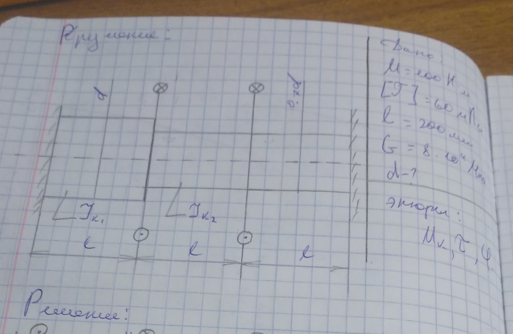 Кручение:
Дано:
M = 200 Н м
[τ] = 60 МПа
l = 200 мм
G = 8·10⁴ МПа
d - ?
эпюры:
Mк, τ, φ
d
Jк₁
Jк₂
l
l
l
Решение: